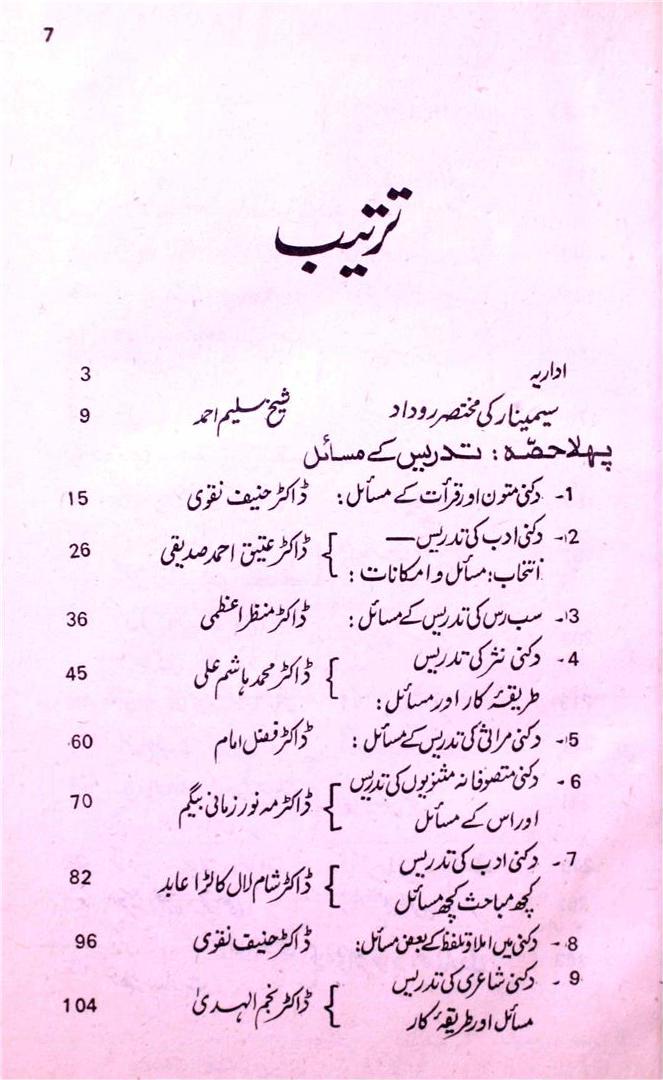 7
ترتیب
اداریہ 3
سیمینار کی مختصر روداد شیخ سلیم احمد 9
پہلا حصّہ : تدریس کے مسائل
1- دکنی متون اور قرأت کے مسائل : ڈاکٹر حنیف نقوی 15
2- دکنی ادب کی تدریس —
انتخاب : مسائل و امکانات : } ڈاکٹر عتیق احمد صدیقی 26
3- سب رس کی تدریس کے مسائل : ڈاکٹر منظر اعظمی 36
4- دکنی نثر کی تدریس
طریقۂ کار اور مسائل : } ڈاکٹر محمد ہاشم علی 45
5- دکنی مراثی کی تدریس کے مسائل : ڈاکٹر فضل امام 60
6- دکنی متصوفانہ مثنویوں کی تدریس
اور اس کے مسائل } ڈاکٹر مہ نور زمانی بیگم 70
7- دکنی ادب کی تدریس
کچھ مباحث کچھ مسائل } ڈاکٹر شام لال کالڑا عابد 82
8- دکنی میں املا و تلفظ کے بعض مسائل : ڈاکٹر حنیف نقوی 96
9- دکنی شاعری کی تدریس
مسائل اور طریقۂ کار } ڈاکٹر نجم الہدیٰ 104